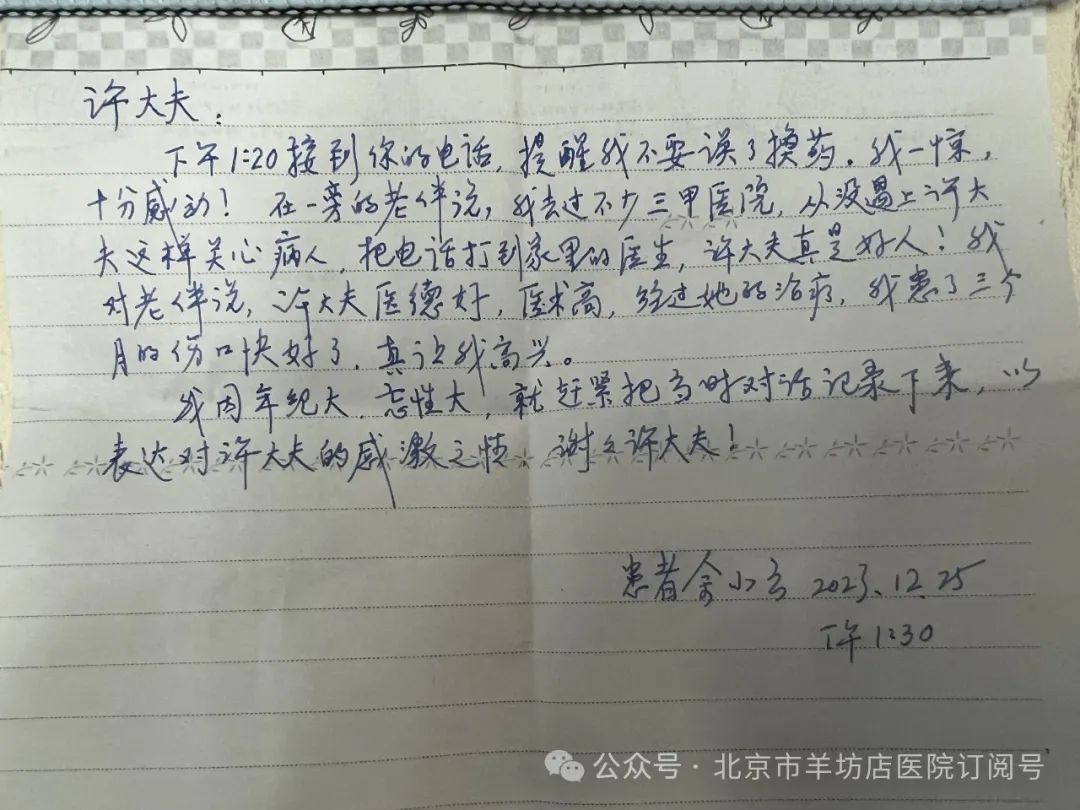 许大夫：
下午1:20接到你的电话，提醒我不要误了换药。我一惊，
十分感动！在一旁的老伴说，我去过不少三甲医院，从没遇上许大
夫这样关心病人，把电话打到家里的医生，许大夫真是好人！我
对老伴说，许大夫医德好，医术高，经过她的治疗，我患了三个
月的伤口快好了，真让我高兴。
我因年纪大，忘性大，就赶紧把当时对话记录下来，以
表达对许大夫的感激之情。谢谢许大夫！
患者余小 2023.12.25
下午1:30
公众号·北京市羊坊店医院订阅号